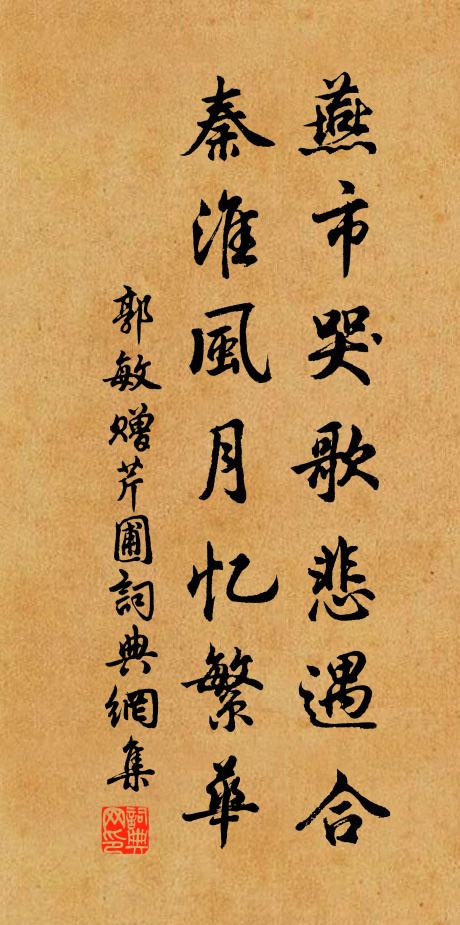 燕市哭歌悲遇合
秦淮風月忆繁華
郭敏赠芹圃詞典網集
詞典网印